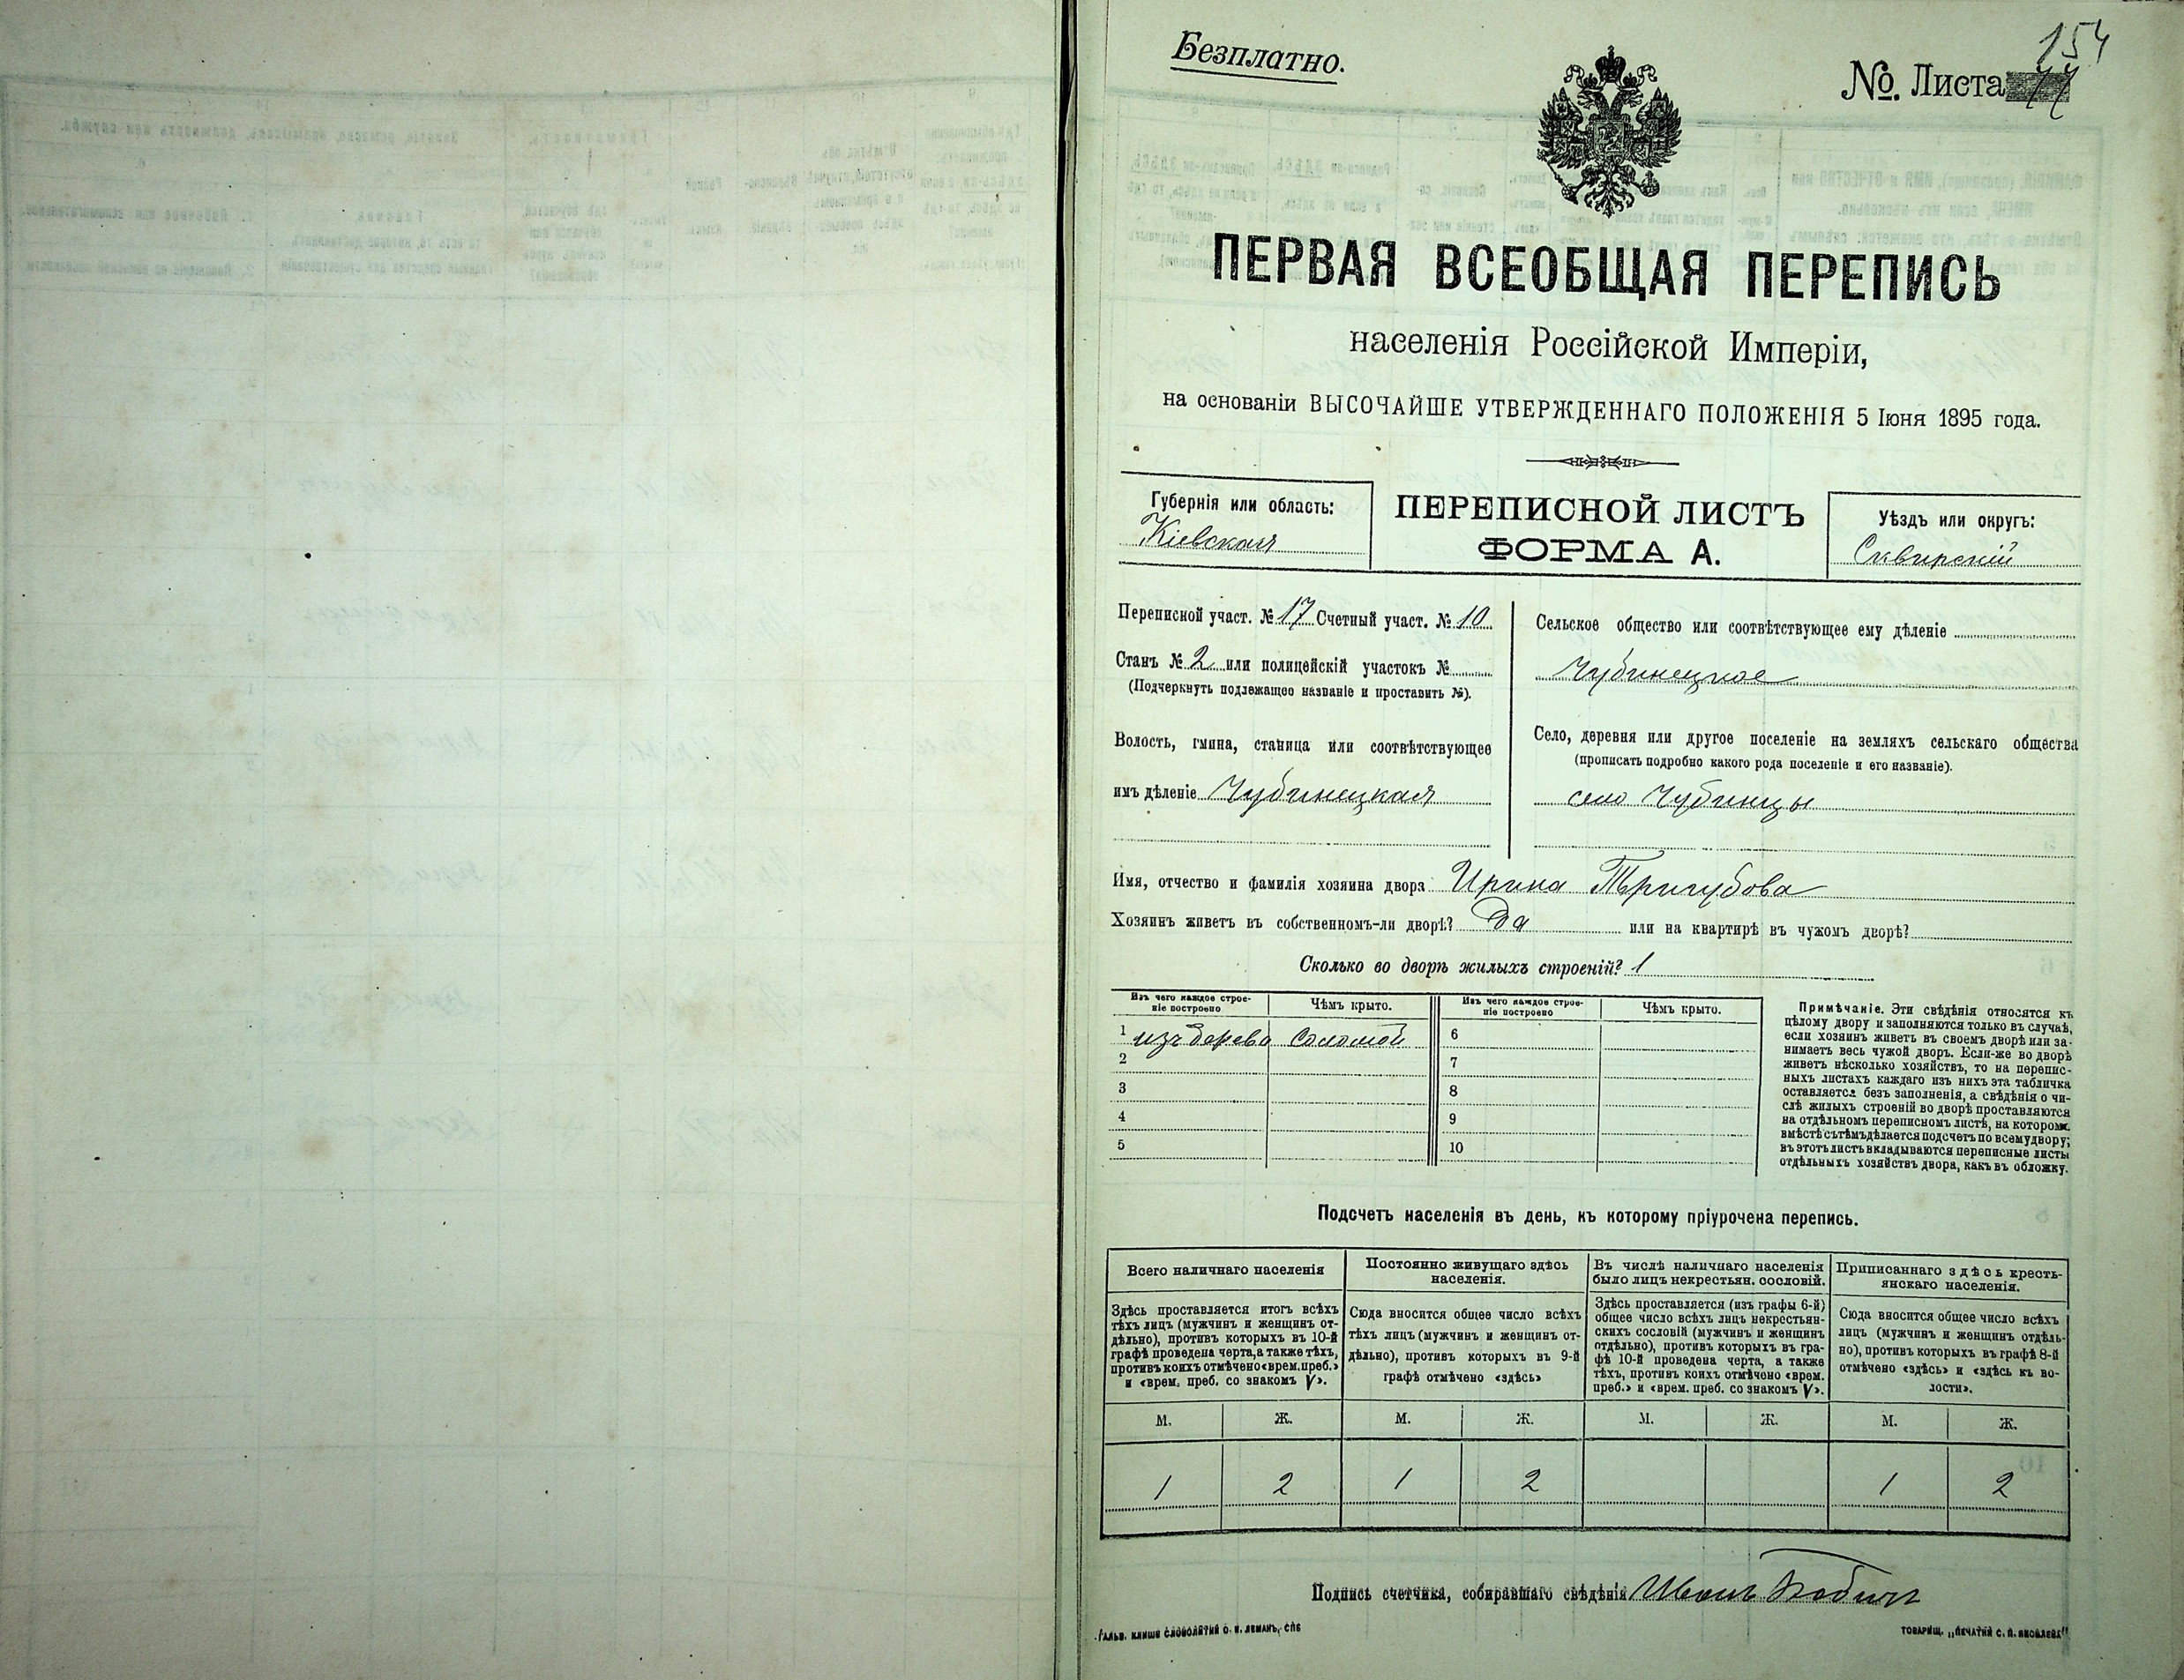 Безплатно.
154
№ Листа 77
ПЕРВАЯ ВСЕОБЩАЯ ПЕРЕПИСЬ
населенія Россійской Имперіи,
на основаніи ВЫСОЧАЙШЕ УТВЕРЖДЕННАГО ПОЛОЖЕНІЯ 5 Іюня 1895 года.
Губернія или область:
Кіевская
ПЕРЕПИСНОЙ ЛИСТЪ
ФОРМА А.
Уѣздъ или округъ:
Сквирскій
Переписной участ. № 17 Счетный участ. № 10
Станъ № 2 или полицейскій участокъ №
(Подчеркнуть подлежащее названіе и проставить №).
Волость, гмина, станица или соотвѣтствующее
имъ дѣленіе Чубинецкая
Сельское общество или соотвѣтствующее ему дѣленіе
Чубинецкое
Село, деревня или другое поселеніе на земляхъ сельскаго общества
(прописать подробно какого рода поселеніе и его названіе).
село Чубинцы
Имя, отчество и фамилія хозяина двора Ирина Тригубова
Хозяинъ живетъ въ собственномъ-ли дворѣ? Да или на квартирѣ въ чужомъ дворѣ?
Сколько во дворѣ жилыхъ строеній? 1
Изъ чего каждое строе-
ніе построено
Чѣмъ крыто.
Изъ чего каждое строе-
ніе построено
Чѣмъ крыто.
1 изъ дерева соломой 6
2 7
3 8
4 9
5 10
Примѣчаніе. Эти свѣдѣнія относятся къ
цѣлому двору и заполняются только въ случаѣ,
если хозяинъ живетъ въ своемъ дворѣ или за-
нимаетъ весь чужой дворъ. Если-же во дворѣ
живетъ нѣсколько хозяйствъ, то на перепис-
ныхъ листахъ каждаго изъ нихъ эта табличка
оставляется безъ заполненія, а свѣдѣнія о чи-
слѣ жилыхъ строеній во дворѣ проставляются
на отдѣльномъ переписномъ листѣ, на которомъ
вмѣстѣ съ тѣмъ дѣлается подсчетъ по всему двору;
въ этотъ листъ вкладываются переписные листы
отдѣльныхъ хозяйствъ двора, какъ въ обложку.
Подсчетъ населенія въ день, къ которому пріурочена перепись.
Всего наличнаго населенія
Здѣсь проставляется итогъ всѣхъ
тѣхъ лицъ (мужчинъ и женщинъ от-
дѣльно), противъ которыхъ въ 10-й
графѣ проведена черта, а также тѣхъ,
противъ коихъ отмѣчено «врем. преб.»
и «врем. преб. со знакомъ V».
Постоянно живущаго здѣсь
населенія.
Сюда вносится общее число всѣхъ
тѣхъ лицъ (мужчинъ и женщинъ от-
дѣльно), противъ которыхъ въ 9-й
графѣ отмѣчено «здѣсь»
Въ числѣ наличнаго населенія
было лицъ некрестьян. сословій.
Здѣсь проставляется (изъ графы 6-й)
общее число всѣхъ лицъ некрестьян-
скихъ сословій (мужчинъ и женщинъ
отдѣльно), противъ которыхъ въ гра-
фѣ 10-й проведена черта, а также
тѣхъ, противъ коихъ отмѣчено «врем.
преб.» и «врем. преб. со знакомъ V».
Приписаннаго здѣсь кресть-
янскаго населенія.
Сюда вносится общее число всѣхъ
лицъ (мужчинъ и женщинъ отдѣль-
но), противъ которыхъ въ графѣ 8-й
отмѣчено «здѣсь» и «здѣсь къ во-
лости».
М. Ж. М. Ж. М. Ж. М. Ж.
1 2 1 2 1 2
Подпись счетчика, собиравшаго свѣдѣнія Иванъ
ГАЛЬВ. КЛИШЕ СЛОВОЛИТНИ О. И. ЛЕМАНЪ, СПБ
ТОВАРИЩ. „ПЕЧАТНИ С. П. ЯКОВЛЕВА"